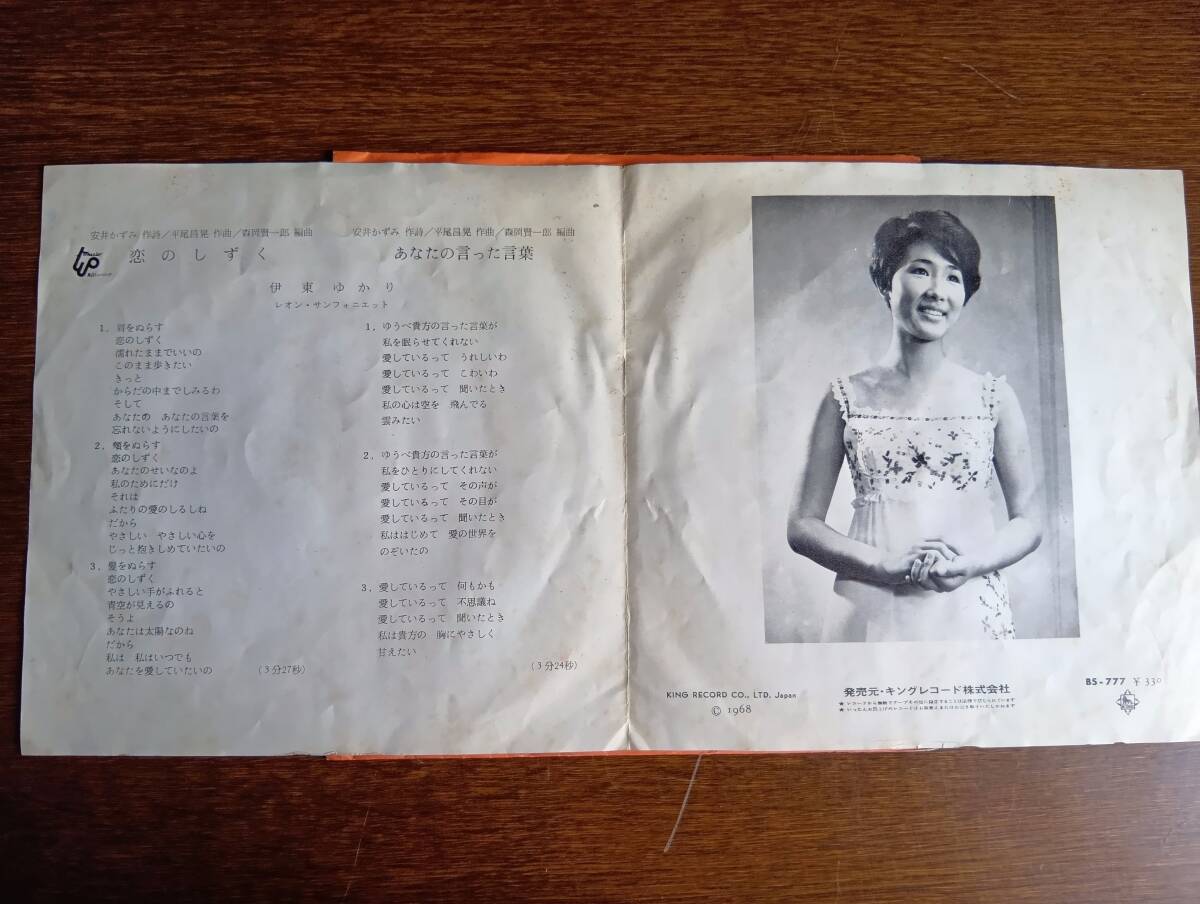 安井かずみ 作詩/平尾昌晃 作曲/森岡賢一郎 編曲
恋のしずく
安井かずみ 作詩/平尾昌晃 作曲/森岡賢一郎 編曲
あなたの言った言葉
伊東ゆかり
レオン・サンフォニエット
1. 肩をぬらす
恋のしずく
濡れたままでいいの
このまま歩きたい
きっと
からだの中までしみるわ
そして
あなたの あなたの言葉を
忘れないようにしたいの
2. 頬をぬらす
恋のしずく
あなたのせいなのよ
私のためにだけ
それは
ふたりの愛のしるしね
だから
やさしい やさしい心を
じっと抱きしめていたいの
3. 髪をぬらす
恋のしずく
やさしい手がふれると
青空が見えるの
そうよ
あなたは太陽なのね
だから
私は 私はいつでも
あなたを愛していたいの
(3分27秒)
1. ゆうべ貴方の言った言葉が
私を眠らせてくれない
愛しているって うれしいわ
愛しているって こわいわ
愛しているって 聞いたとき
私の心は空を 飛んでる
雲みたい
2. ゆうべ貴方の言った言葉が
私をひとりにしてくれない
愛しているって その声が
愛しているって その目が
愛しているって 聞いたとき
私ははじめて 愛の世界を
のぞいたの
3. 愛しているって 何もかも
愛しているって 不思議ね
愛しているって 聞いたとき
私は貴方の 胸にやさしく
甘えたい
(3分24秒)
KING RECORD CO., LTD. Japan
© 1968
発売元・キングレコード株式会社
BS-777 ¥330